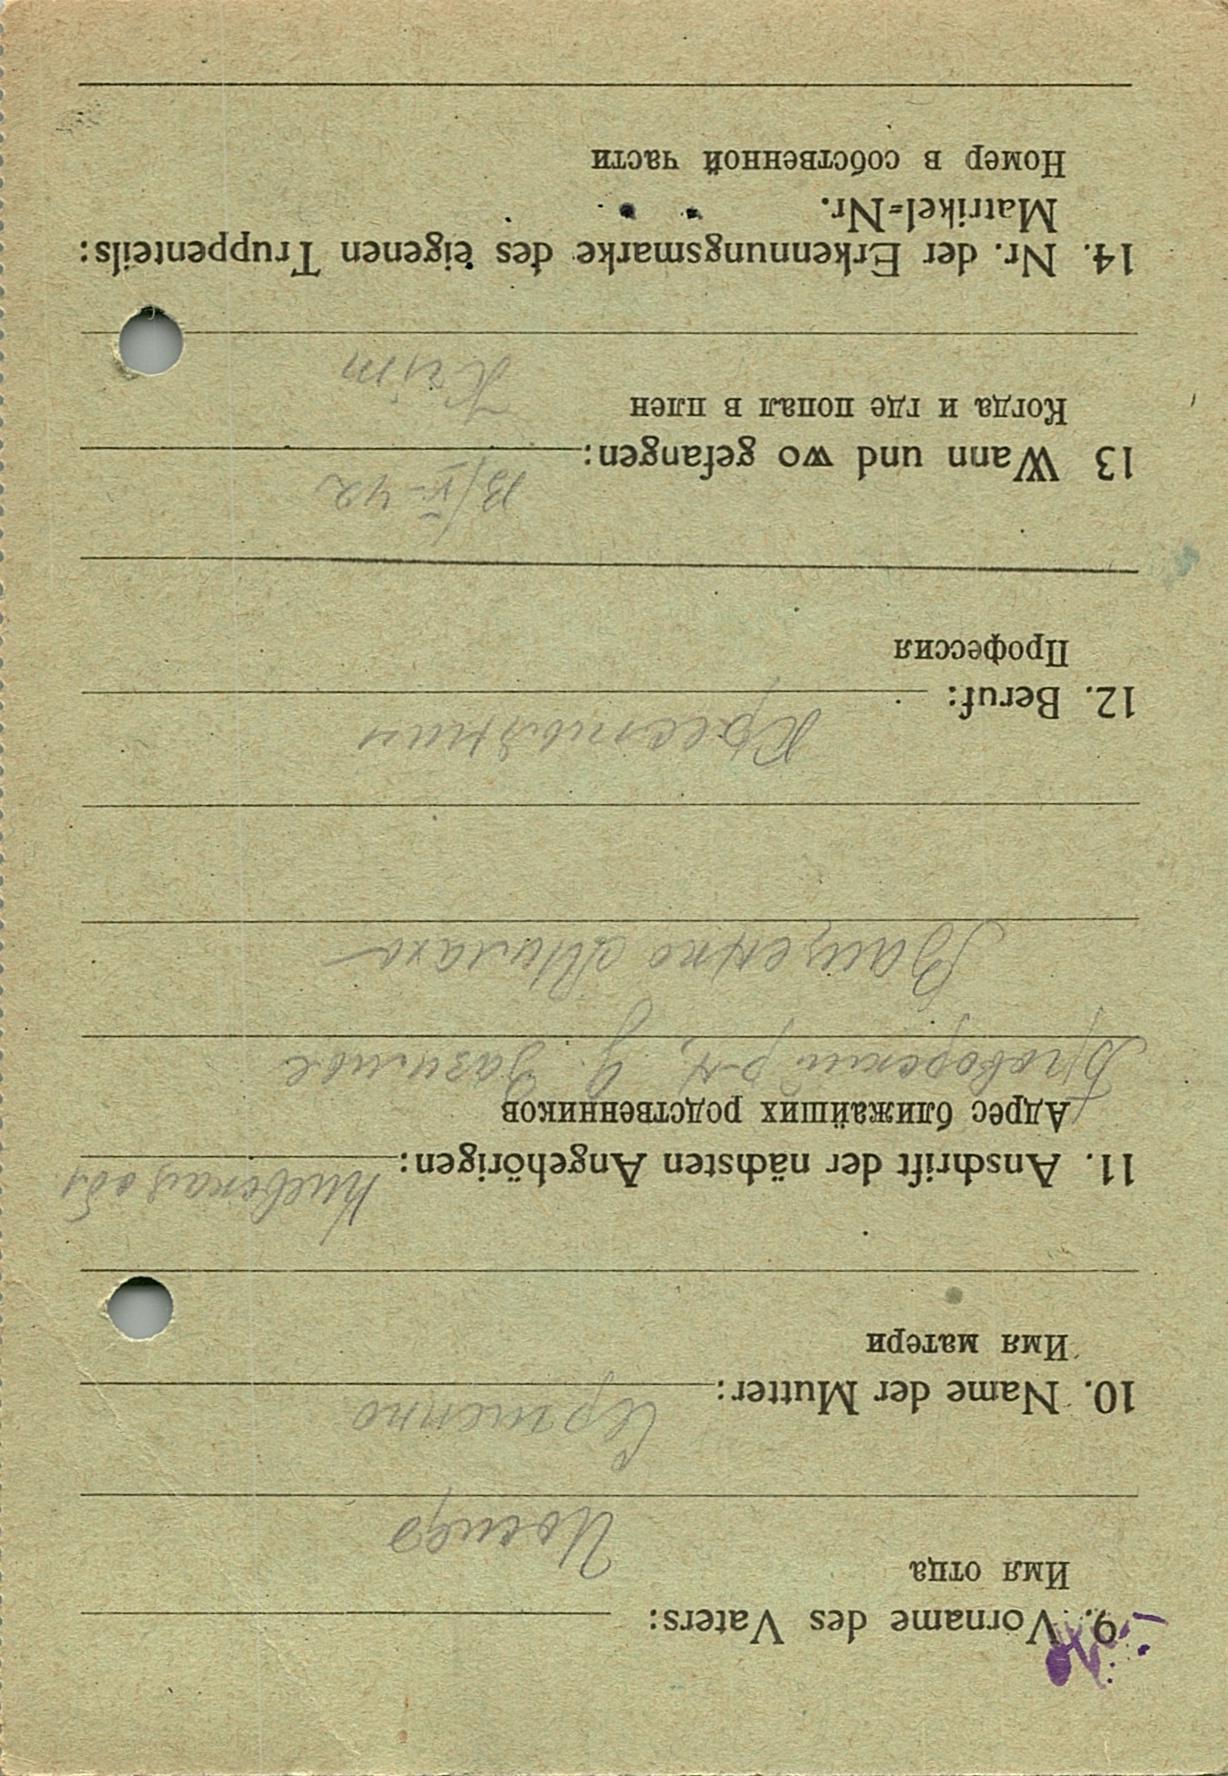 9. Vorname des Vaters:
Имя отца
10. Name der Mutter:
Имя матери
11. Anschrift der nächsten Angehörigen: Киевская обл
Адрес ближайших родственников
р-н, д.
Ващенко
12. Beruf: Крестьянин
Профессия
13 Wann und wo gefangen: 13/V-42
Когда и где попал в плен
14. Nr. der Erkennungsmarke des eigenen Truppenteils:
Matrikel-Nr.
Номер в собственной части